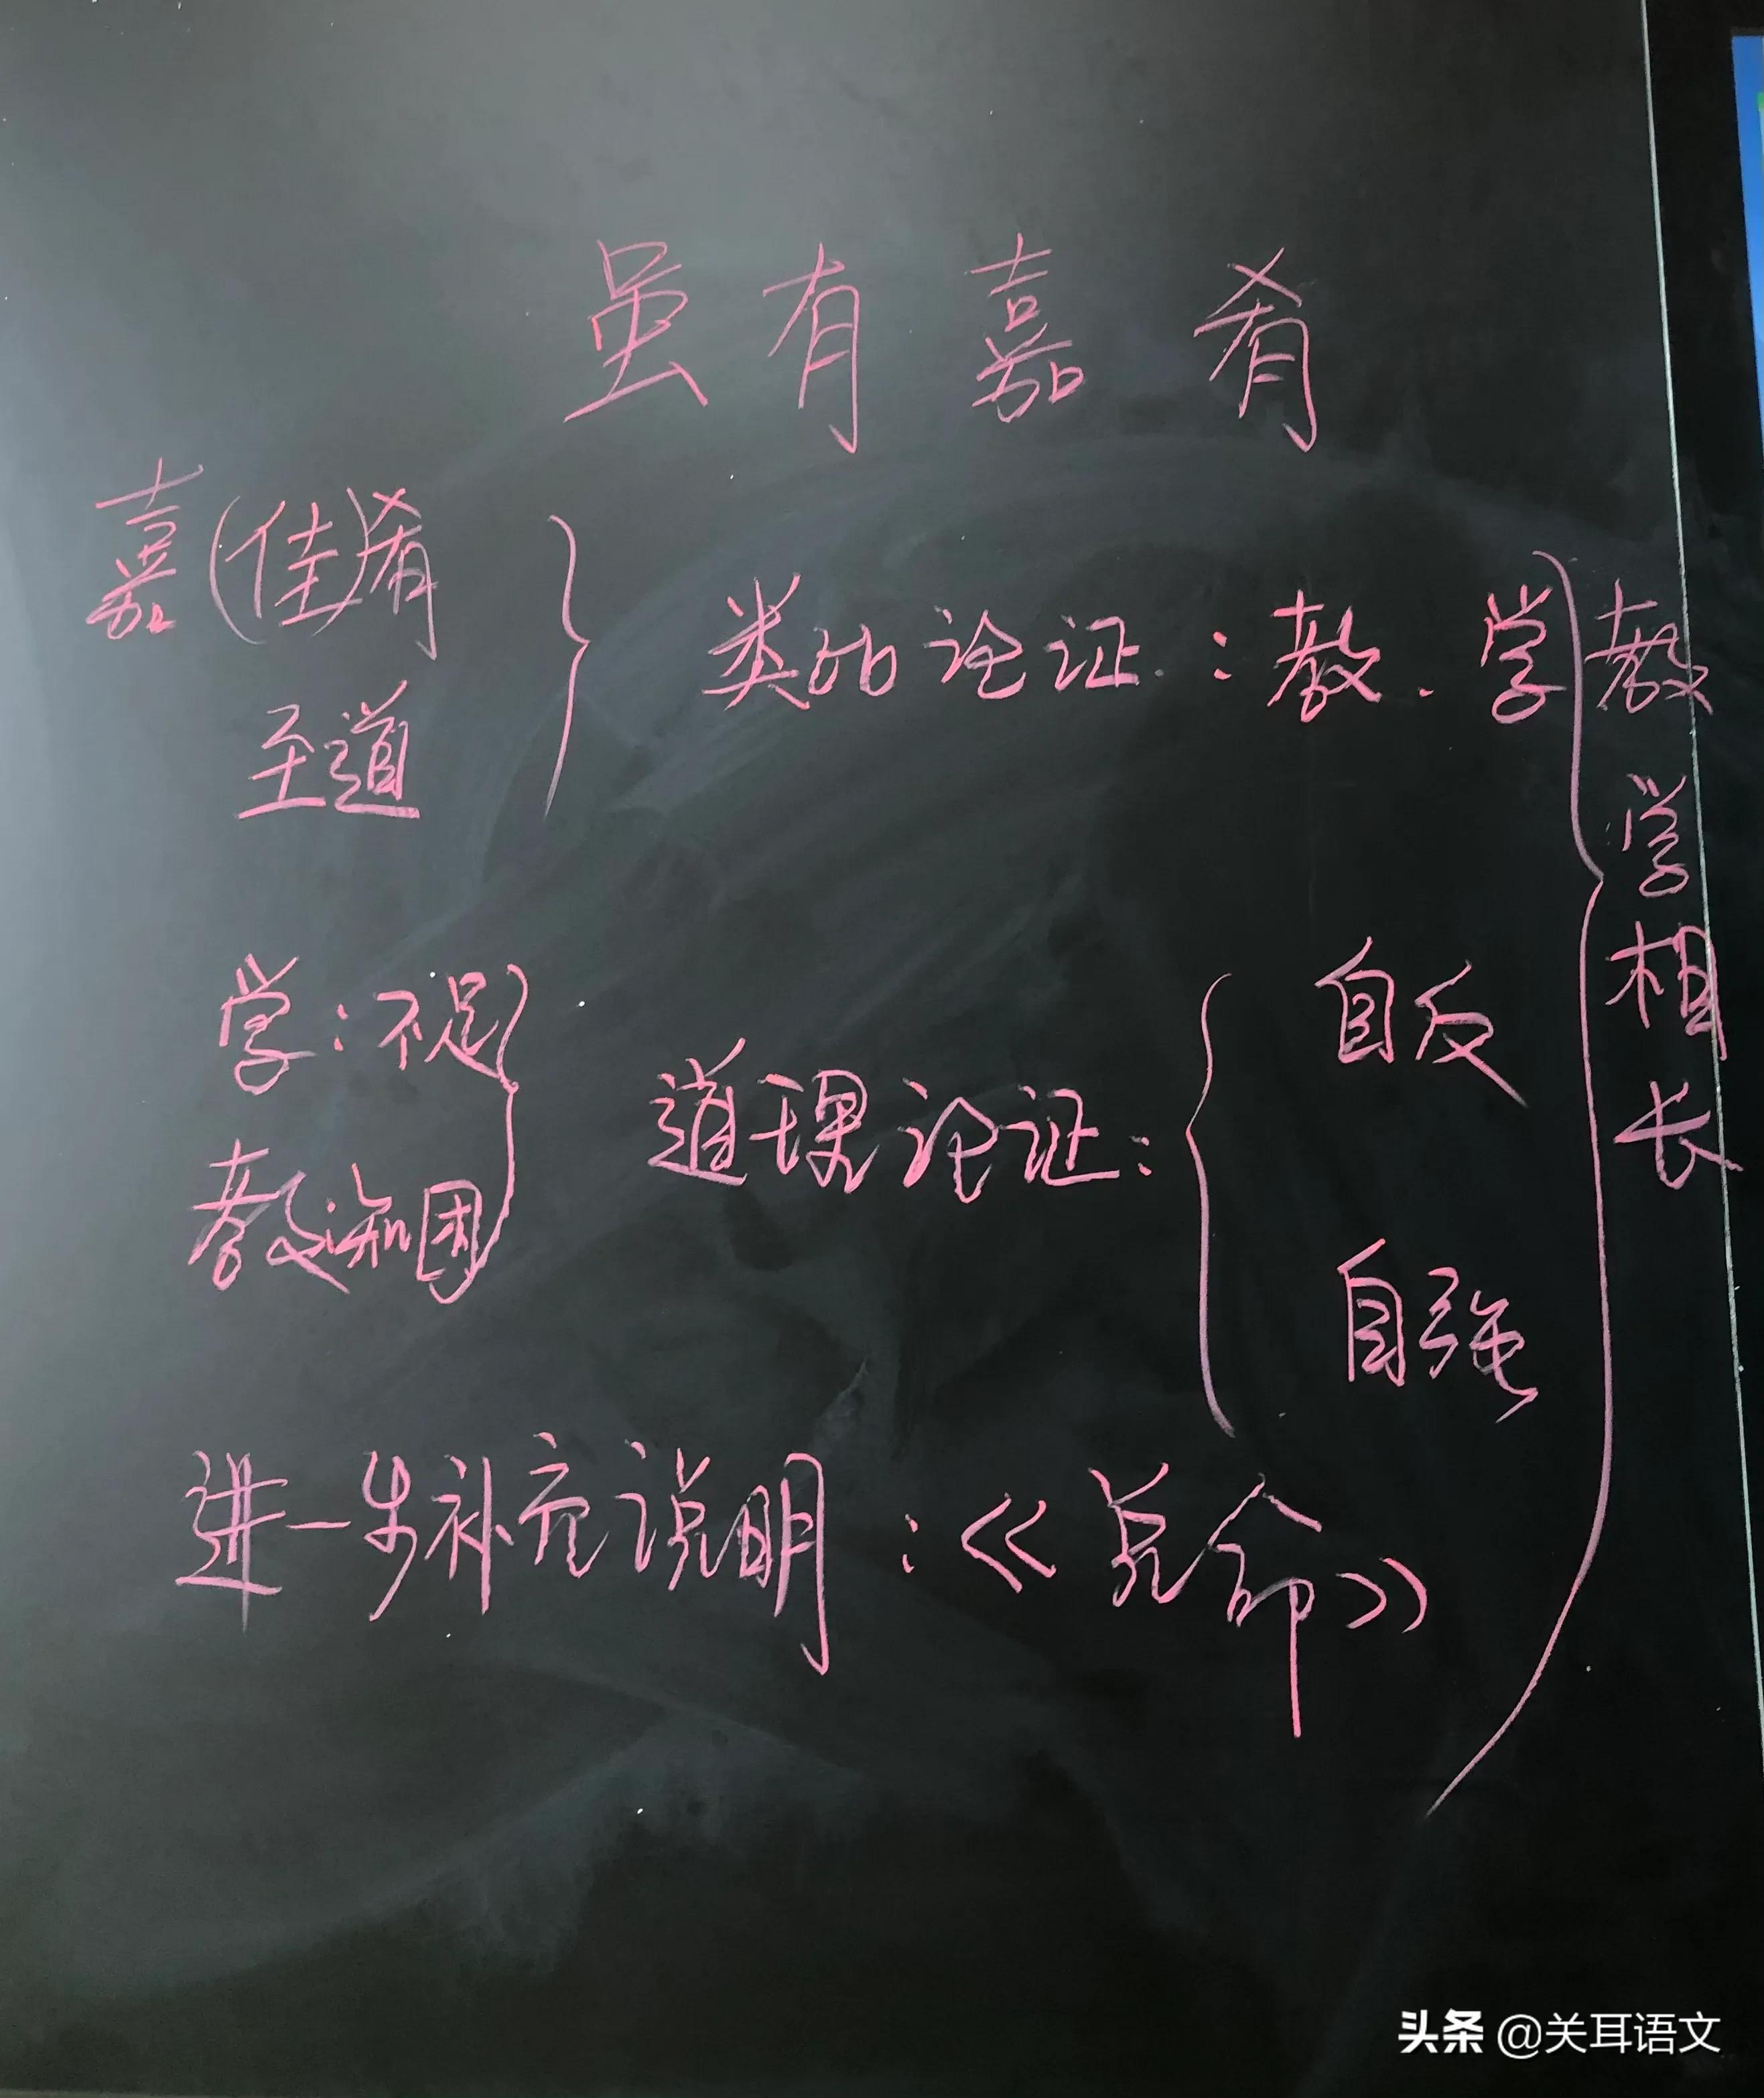 虽有嘉肴
嘉(佳)肴
至道
类比论证:教.学
学:不足
教:知困
道理论证:
自反
自强
进一步补充说明:《兑命》
教学相长
头条 @关耳语文